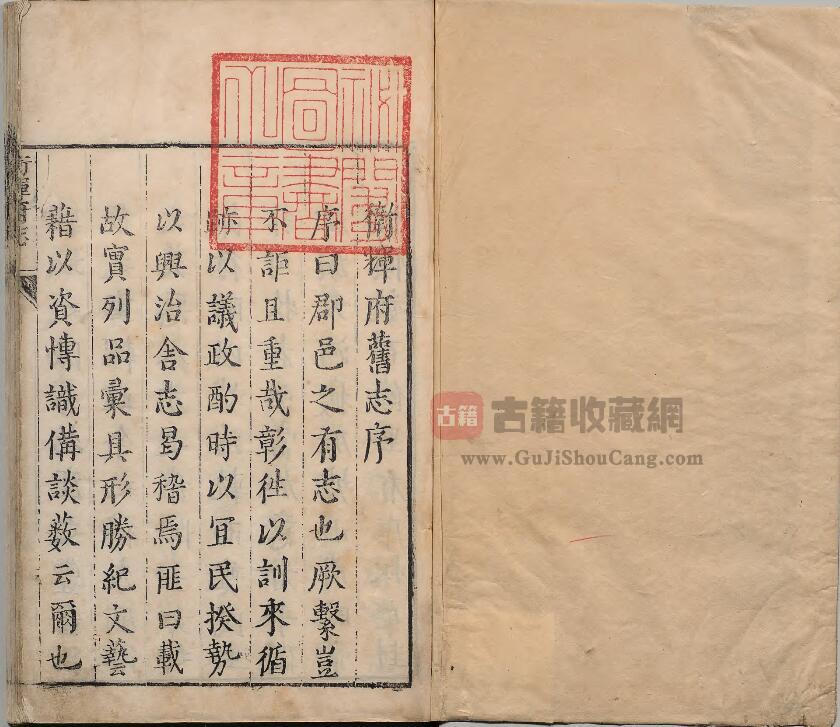 衛輝府舊志序
序曰郡邑之有志也厥繫豈
不詎且重哉彰徃以訓來循
跡以議政酌時以冝民揆勢
以興治舍志曷稽焉匪曰載
故實列品彙具形勝紀文藝
藉以資愽識備談薮云爾也
衛輝府志
古籍
古籍收藏網
www.GuJiShouCang.com